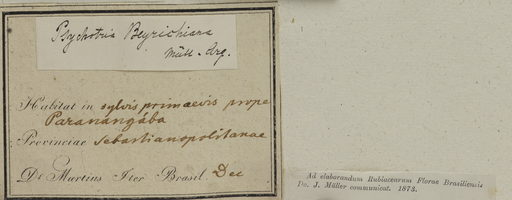 Psychotria Beyrichiana
Müll-Arg.
Habitat in sylvis primaevis prope
Paranangába
Provinciae Sebastianopolitanae
Dr Martius Iter Brasil. Dec
Ad elaborandum Rubiacearum Florae Brasiliensis
Do. J. Müller communicat. 1873.